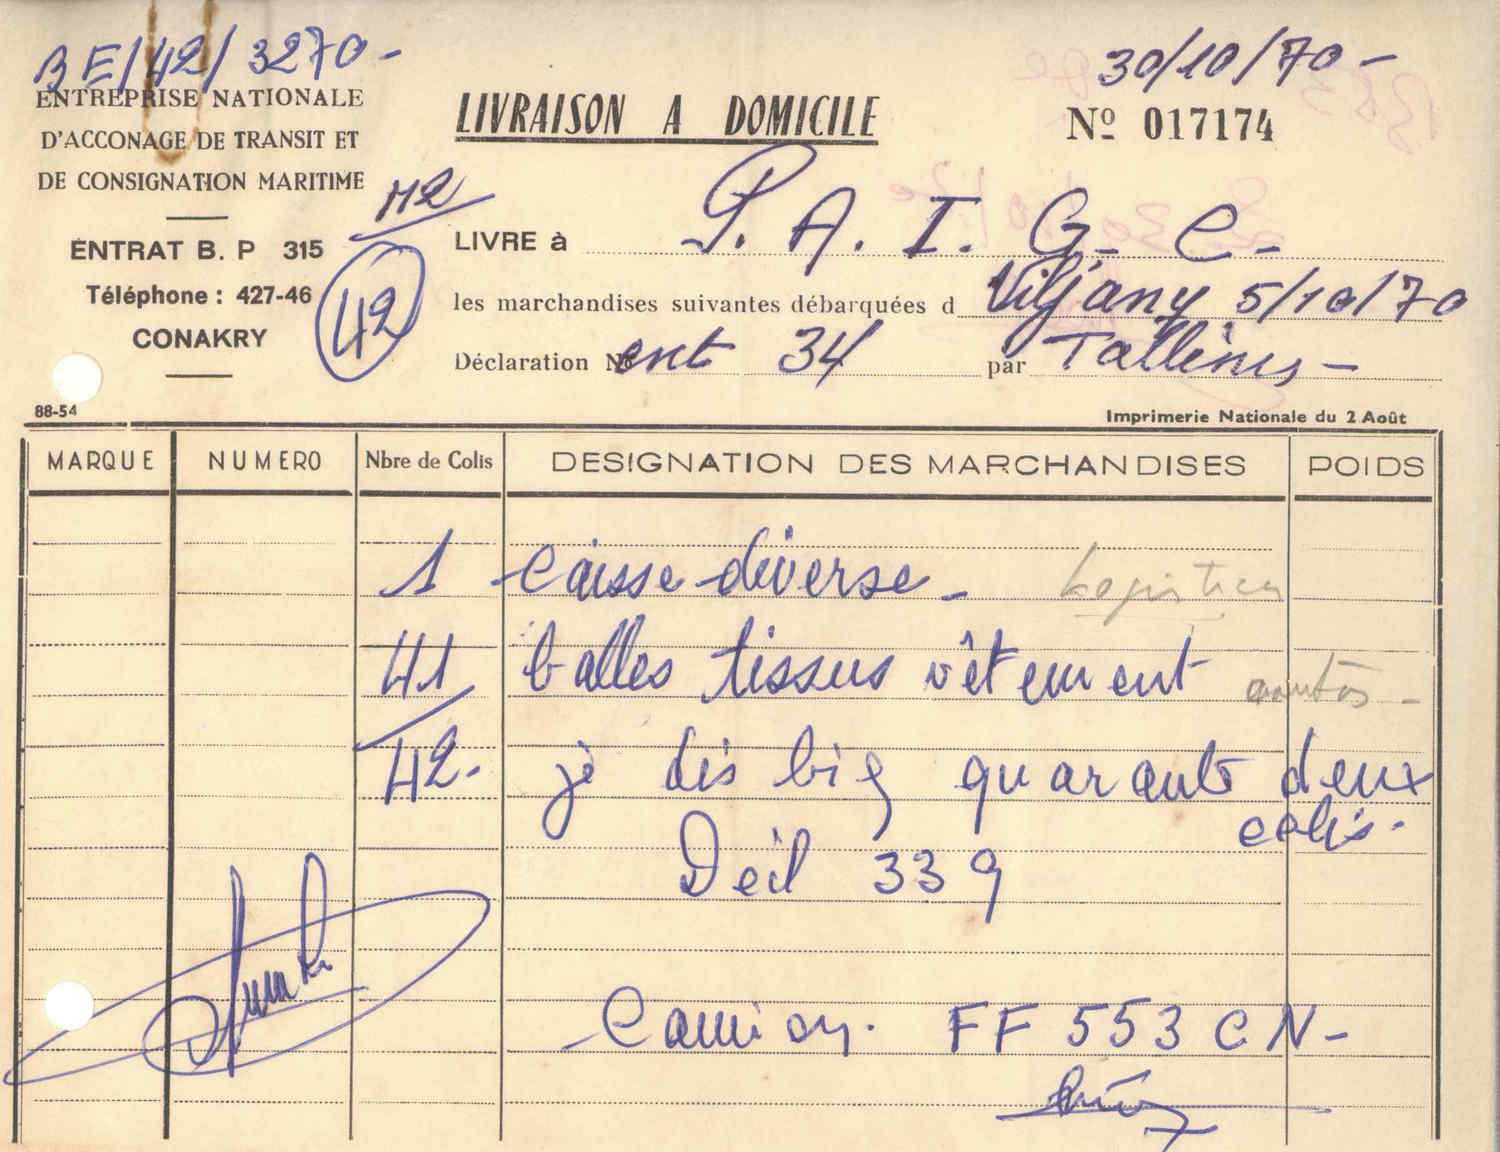 BE/42/3270-
30/10/70-
ENTREPRISE NATIONALE
D'ACCONAGE DE TRANSIT ET
DE CONSIGNATION MARITIME
LIVRAISON A DOMICILE
Nº 017174
ENTRAT B. P 315
Téléphone : 427-46
CONAKRY
42
LIVRE à P. A. I. G. C.
les marchandises suivantes débarquées d Viljany 5/10/70
Déclaration Nº ent 34 par
88-54
Imprimerie Nationale du 2 Août
MARQUE NUMERO Nbre de Colis DESIGNATION DES MARCHANDISES POIDS
1 Caisse diverse -
41 balles tissus vêtement
42. je dis quarante deux
colis.
339
- Camion. FF 553 CN-